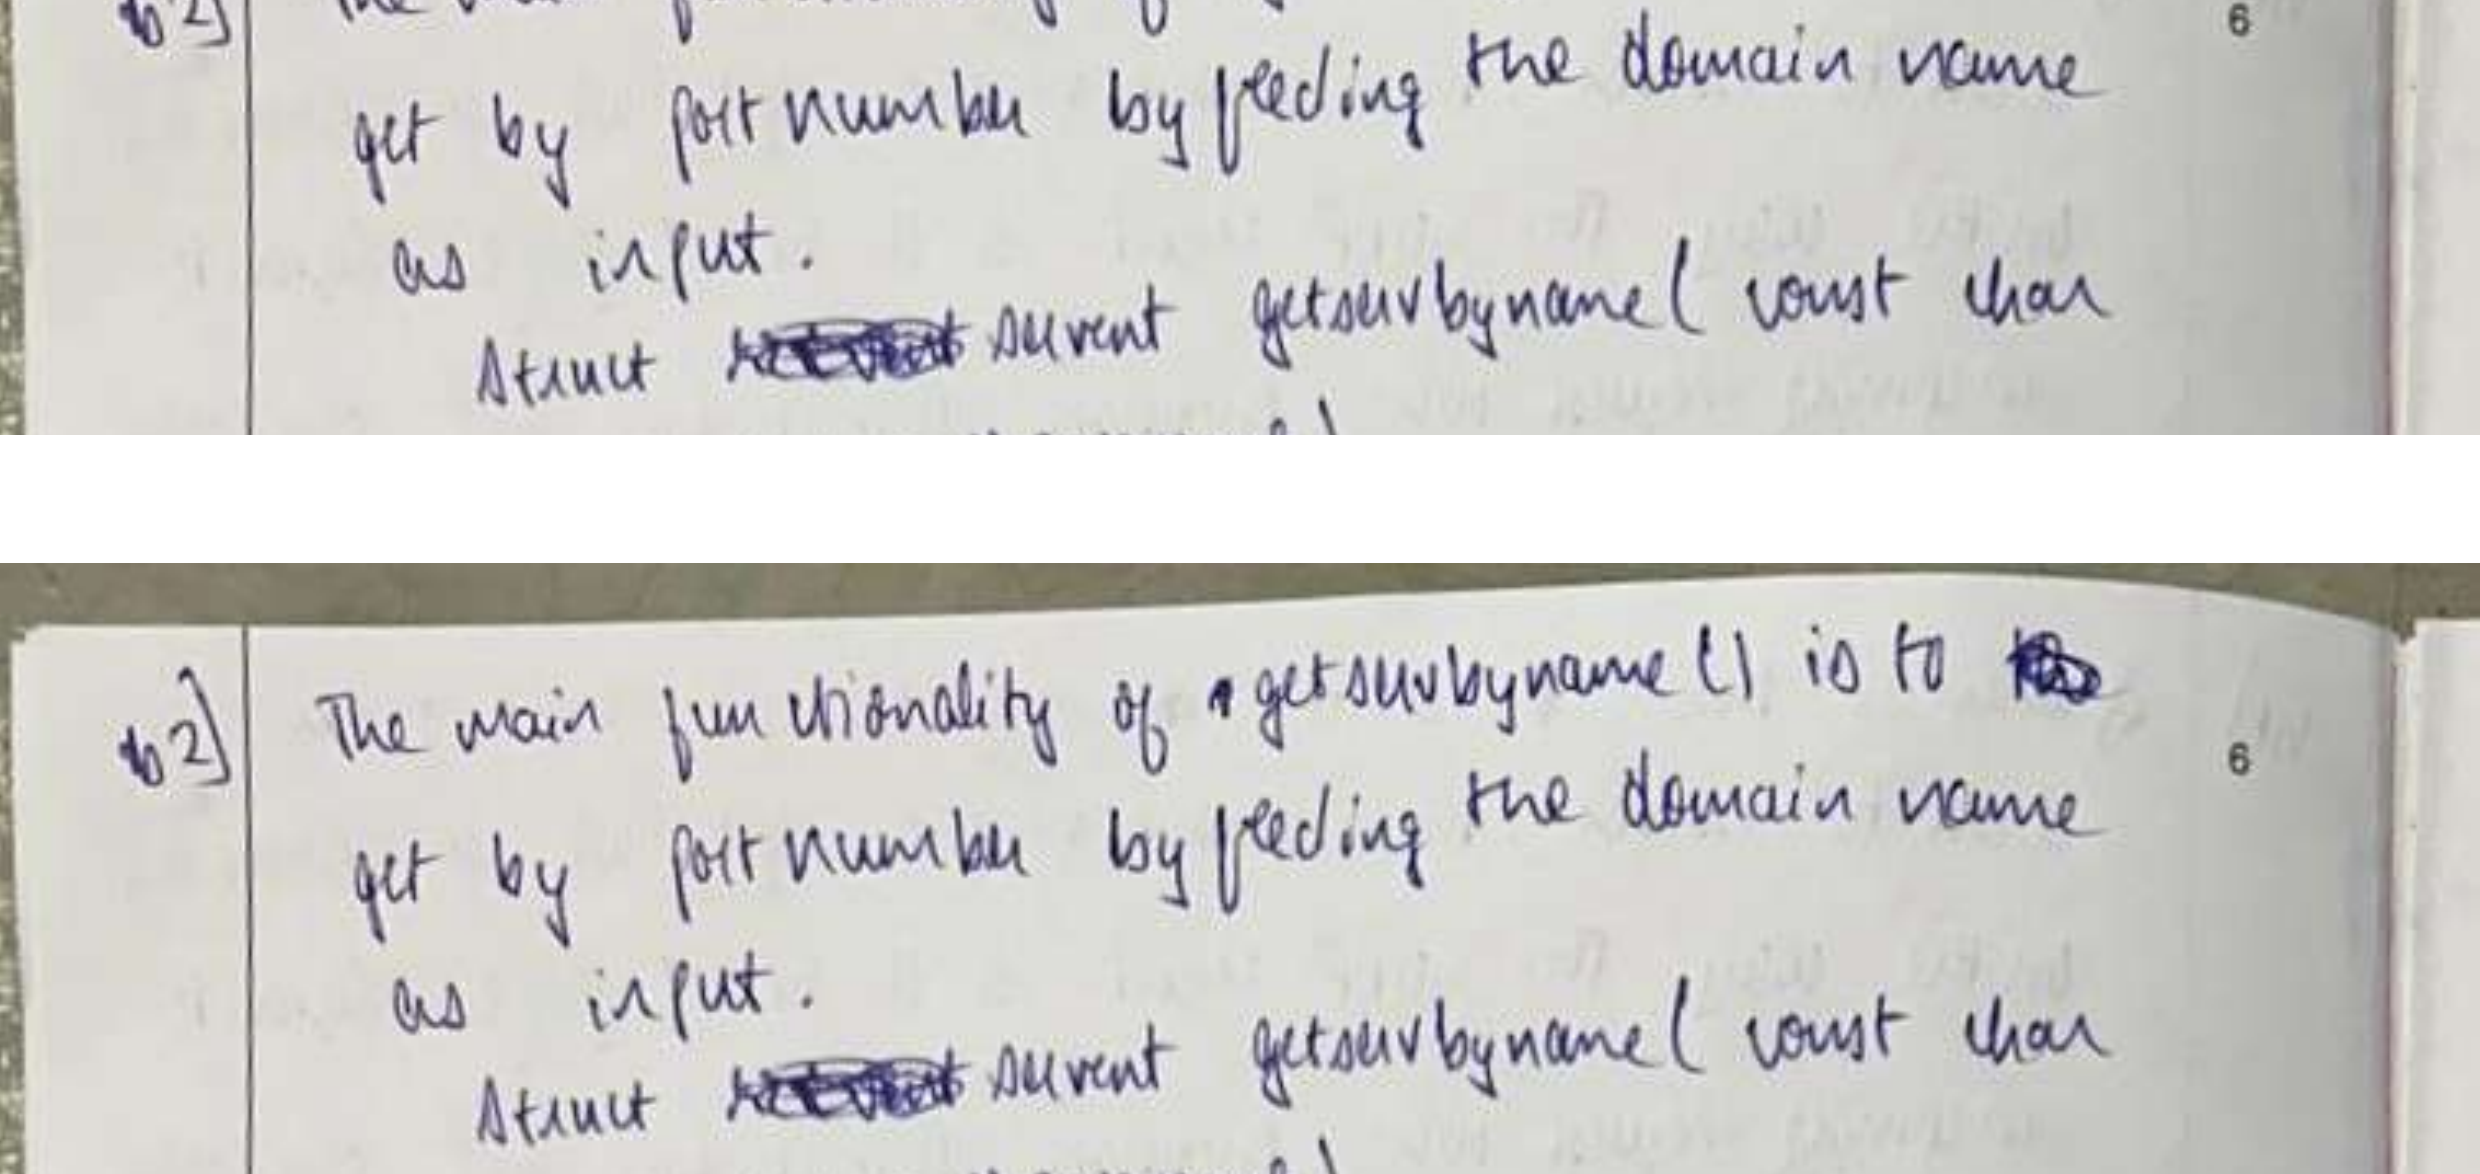 b2]
6
get by port number by feeding the domain name
as input.
struct servent getservbyname( const char
b2] The main functionality of getservbyname() is to
6
get by port number by feeding the domain name
as input.
struct servent getservbyname( const char